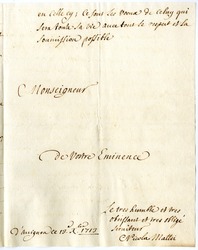 en celle cy; Ce sont les vœux de celuy qui
sera toute sa vie avec tout le respect et la
soumission possible
Monseigneur
De Vostre Eminence
Le tres humble et tres
obeissant et tres obligé
serviteur
D'avignon ce 12e 1713
Nicolas